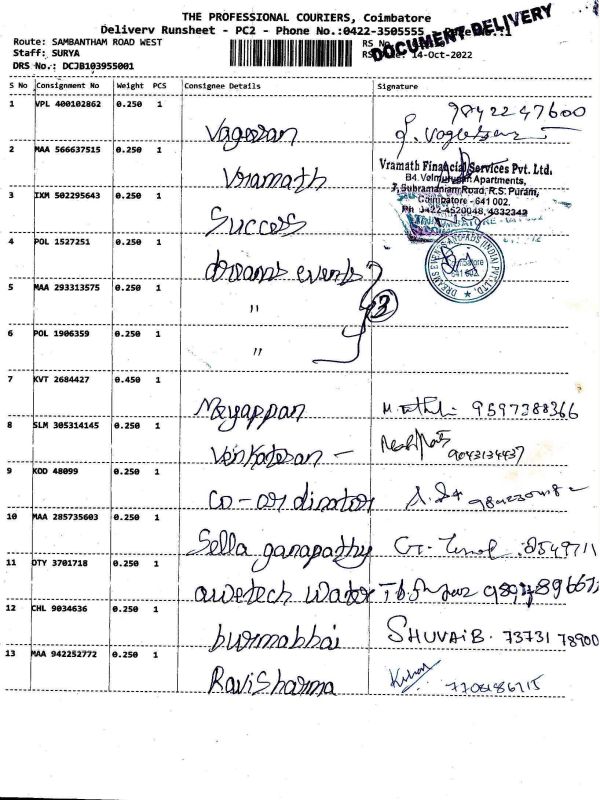 THE PROFESSIONAL COURIERS, Coimbatore
Delivery Runsheet - PC2 - Phone No.:0422-3505555
DOCUMENT DELIVERY
Route: SAMBANTHAM ROAD WEST
RS No
Staff: SURYA
14-Oct-2022
DRS No.: DCJB103955001
S No Consignment No Weight PCS Consignee Details Signature
1 VPL 400102862 0.250 1
9842247600
Vageesan
2 MAA 566637515 0.250 1
Vramath
Vramath Financial Services Pvt. Ltd.
B4. Velmurugan Apartments,
7, Subramaniam Road, R.S. Puram,
Coimbatore - 641 002.
Ph 0422-4520048, 4332342
3 IXM 502295643 0.250 1
Success
4 POL 1527251 0.250 1
dreams events
DREAMS EVENTS AND ADS (INDIA) PVT. LTD.
Coimbatore
641 002.
5 MAA 293313575 0.250 1
"
3
6 POL 1906359 0.250 1
"
7 KVT 2684427 0.450 1
Meyappan
9597388366
8 SLM 305314145 0.250 1
Venkatesan -
9043134437
9 KOD 48099 0.250 1
co-ordinator
10 MAA 285735603 0.250 1
Sella ganapathy
11 DTY 3701718 0.250 1
awetech water
12 CHL 9034636 0.250 1
burmabhai
SHUVAIB. 73731 78900
13 MAA 942252772 0.250 1
Ravi Sharma